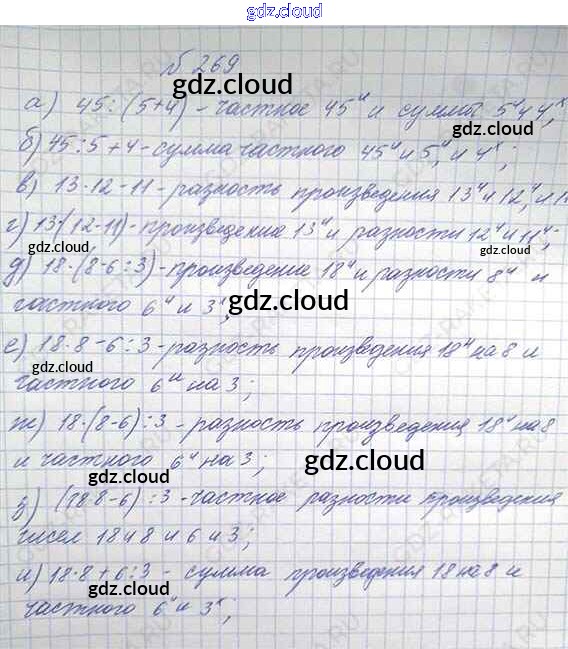 gdz.cloud
№ 269
gdz.cloud
а) 45:(5+4) - частное 45и и суммы 5и4х;
б) 45:5+4 - сумма частного 45и и 5, и 4х;
в) 13·12-11 - разность произведения 13и и 12и, и 1
г) 13·(12-11) - произведение 13и и разности 12и и 11и;
gdz.cloud
gdz.cloud
д) 18·(8-6:3) - произведение 18и и разности 8и и
частного 6и и 3х;
gdz.cloud
е) 18:8-6:3 - разность произведения 18и на 8 и
gdz.cloud
частного 6и на 3;
ж) 18·(8-6):3 - разность произведения 18и на 8
и частного 6и на 3;
gdz.cloud
gdz.cloud
з) (18·8-6):3 - частное разности произведения
чисел 18 и 8 и 6 и 3;
и) 18·8+6:3 - сумма произведения 18 на 8 и
частного 6и и 3х;
gdz.cloud
gdz.cloud